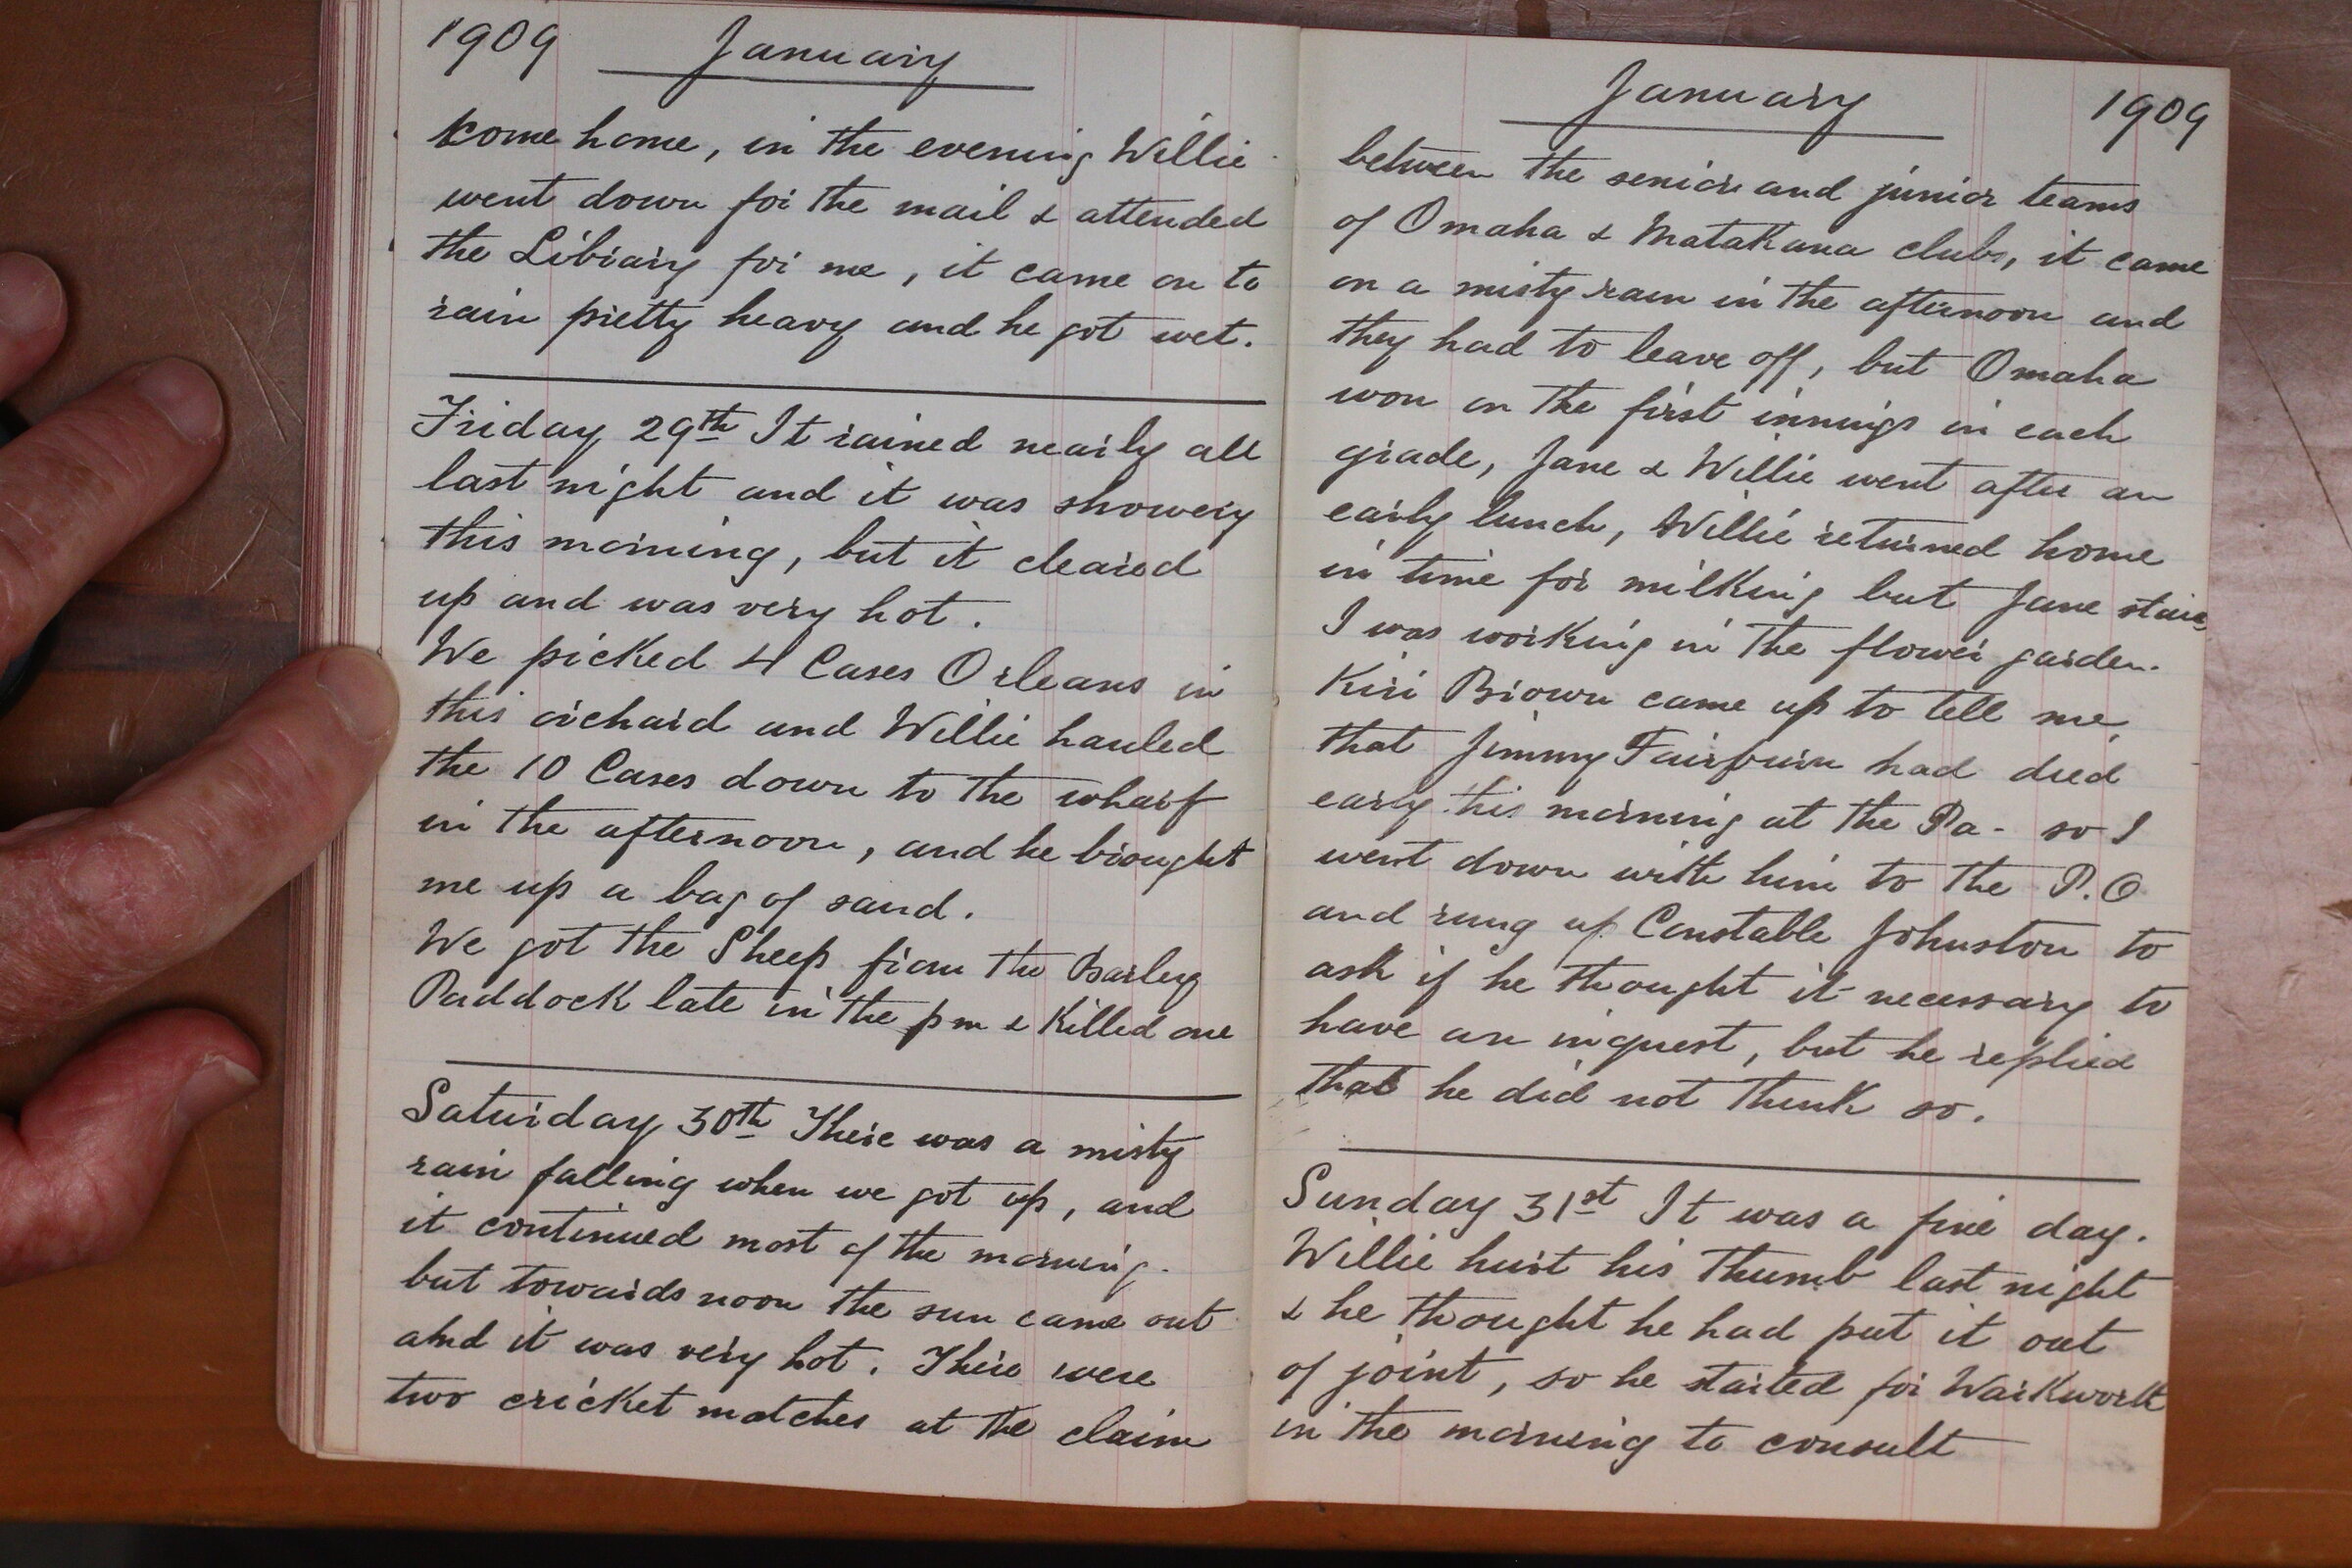 1909 January
come home, in the evening Willie
went down for the mail & attended
the Library for me, it came on to
rain pretty heavy and he got wet.
Friday 29th It rained nearly all
last night and it was showery
this morning, but it cleared
up and was very hot.
We picked 4 Cases Orleans in
this orchard and Willie hauled
the 10 Cases down to the wharf
in the afternoon, and he brought
me up a bag of sand.
We got the Sheep from the Barley
Paddock late in the pm & Killed one
Saturday 30th There was a misty
rain falling when we got up, and
it continued most of the morning.
but towards noon the sun came out
and it was very hot. There were
two cricket matches at the claim
January 1909
between the senior and junior teams
of Omaha & Matakana clubs, it came
on a misty rain in the afternoon and
they had to leave off, but Omaha
won on the first innings in each
grade, Jane & Willie went after an
early lunch, Willie returned home
in time for milking but Jane
I was working in the flower garden.
Kiri Brown came up to tell me
that Jimmy Fairburn had died
early this morning at the Pa - so I
went down with him to the P.O
and rung up Constable Johnston to
ask if he thought it necessary to
have an inquest, but he replied
that he did not think so.
Sunday 31st It was a fine day.
Willie hurt his thumb last night
& he thought he had put it out
of joint, so he started for Warkworth
in the morning to consult